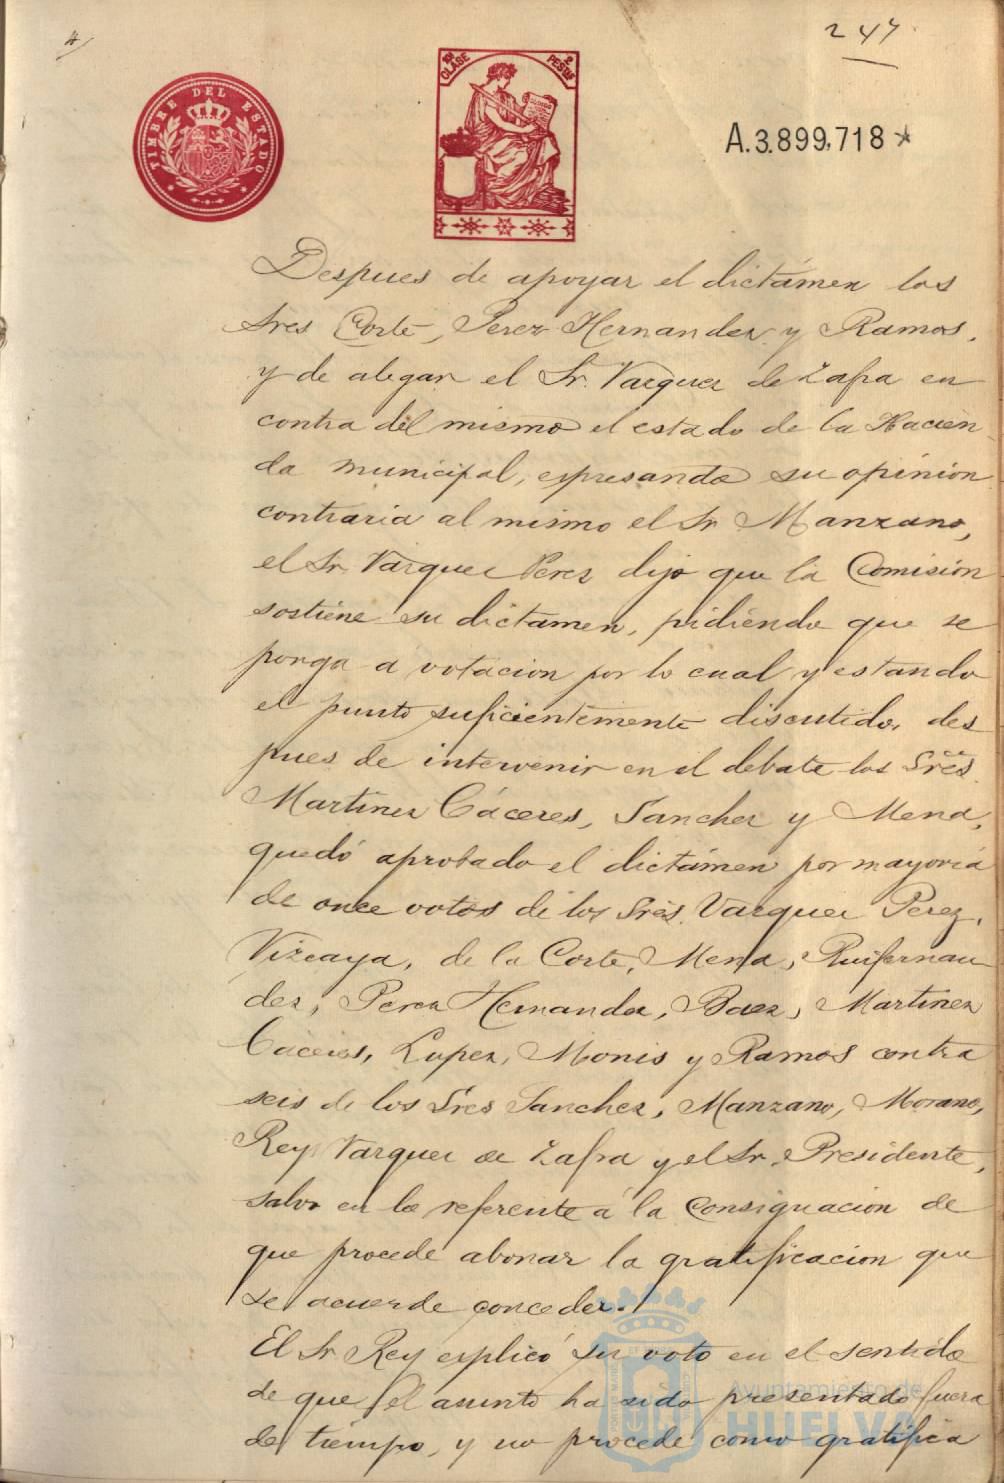 247
TIMBRE DEL ESTADO
10ª CLASE 2 PESETAS
A.3.899,718
Despues de apoyar el dictámen los
Sres Corte, Perez Hernandez y Ramos,
y de alegar el Sr. Vazquez de Zafra en
contra del mismo el estado de la Hacien
da municipal, espresando su opinion
contraria al mismo el Sr Manzano,
el Sr. Vazquez Perez dijo que la Comisión
sostiene su dictamen, pidiendo que se
ponga a votacion por lo cual y estando
el punto suficientemente discutido, des
pues de intervenir en el debate los Sres.
Martinez Cáceres, Sanchez y Mena,
quedó aprobado el dictámen por mayoría
de once votos de los Sres. Vazquez Perez,
Vizcaya, de la Corte, Mena, Ruifernan
dez, Perez Hernandez, Baez, Martinez
Cáceres, Lopez, Monis y Ramos contra
seis de los Sres Sanchez, Manzano, Morano,
Rey, Vazquez de Zafra y el Sr. Presidente,
salvo en lo referente á la consignacion de
que procede abonar la gratificacion que
se acuerde conceder.
El Sr Rey esplicó su voto en el sentido
de que el asunto ha sido presentado fuera
de tiempo, y no procede como gratifica
Ayuntamiento de
HUELVA